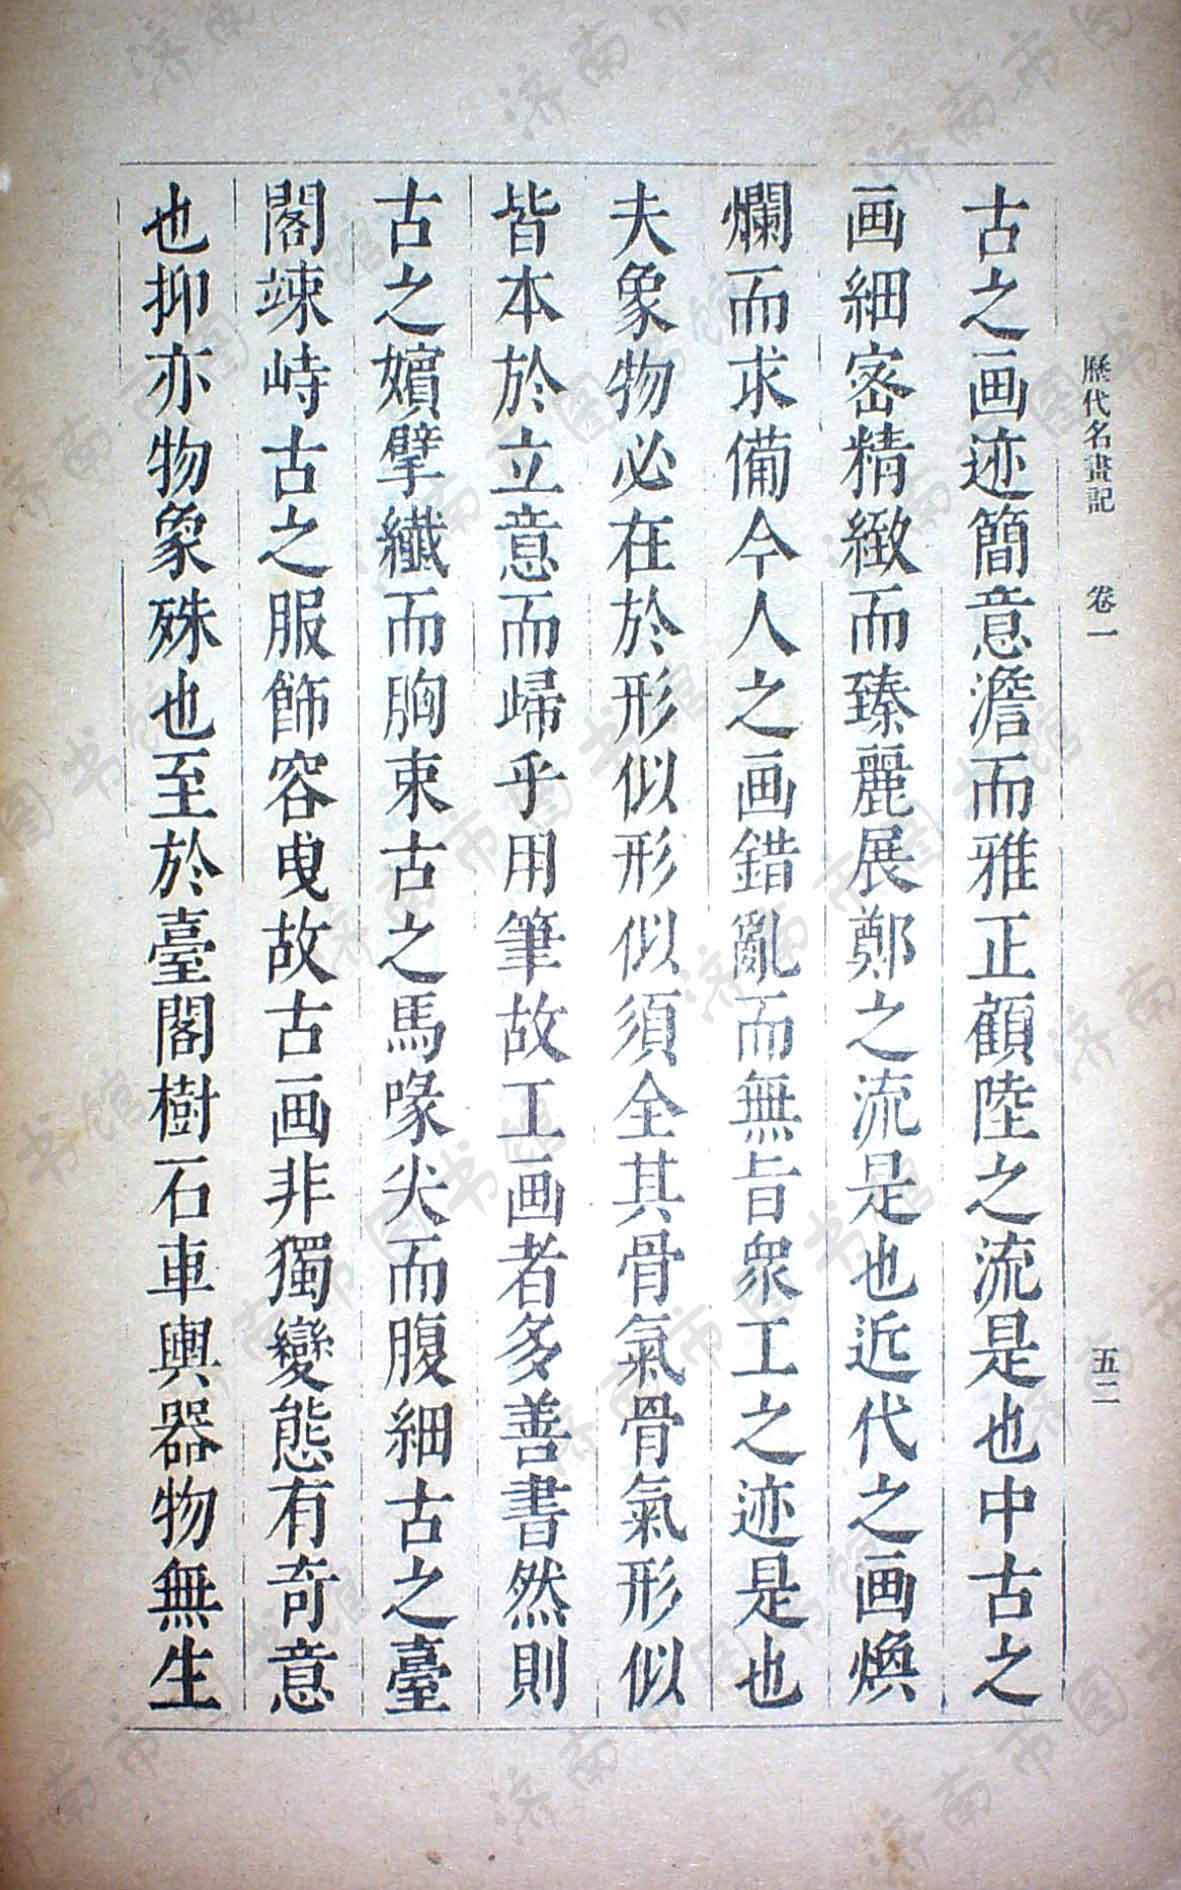 歷代名畫記 卷一 五二
古之画迹簡意澹而雅正顧陸之流是也中古之
画細密精緻而臻麗展鄭之流是也近代之画煥
爛而求備今人之画錯亂而無旨衆工之迹是也
夫象物必在於形似形似須全其骨氣骨氣形似
皆本於立意而歸乎用筆故工画者多善書然則
古之嬪擘纎而胸束古之馬喙尖而腹細古之臺
閣竦峙古之服飾容曳故古画非獨變態有奇意
也抑亦物象殊也至於臺閣樹石車輿器物無生
济南市图书馆